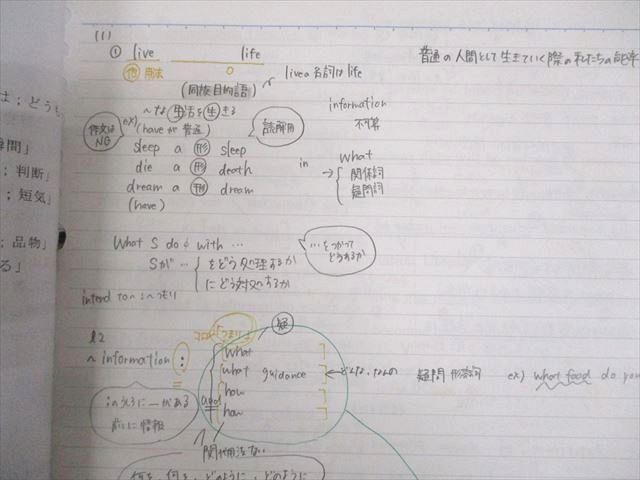 (1)
① live life
普通の人間として生きていく際の私たちの能率
他 用法 O
liveの名詞はlife
(同族目的語)
information
不可算
〜な生活を生きる
作文はNG
ex) (haveが普通)
読解用
sleep a 形 sleep
die a 形 death
dream a 形 dream
(have)
in → what
関係詞
疑問詞
What S do φ with …
Sが … をどう処理するか
にどう対処するか
…をつかって
どうするか
intend to n : 〜つもり
l2
コロン「つまり」
疑
〜 information :
what
what guidance
← どんな、なんの
疑問 形容詞
ex) what food do you
how
and
how
関代用法ない
何を、何を、どのように、どのように
は；どうし
；判断」
；短気」
；品物」
る」